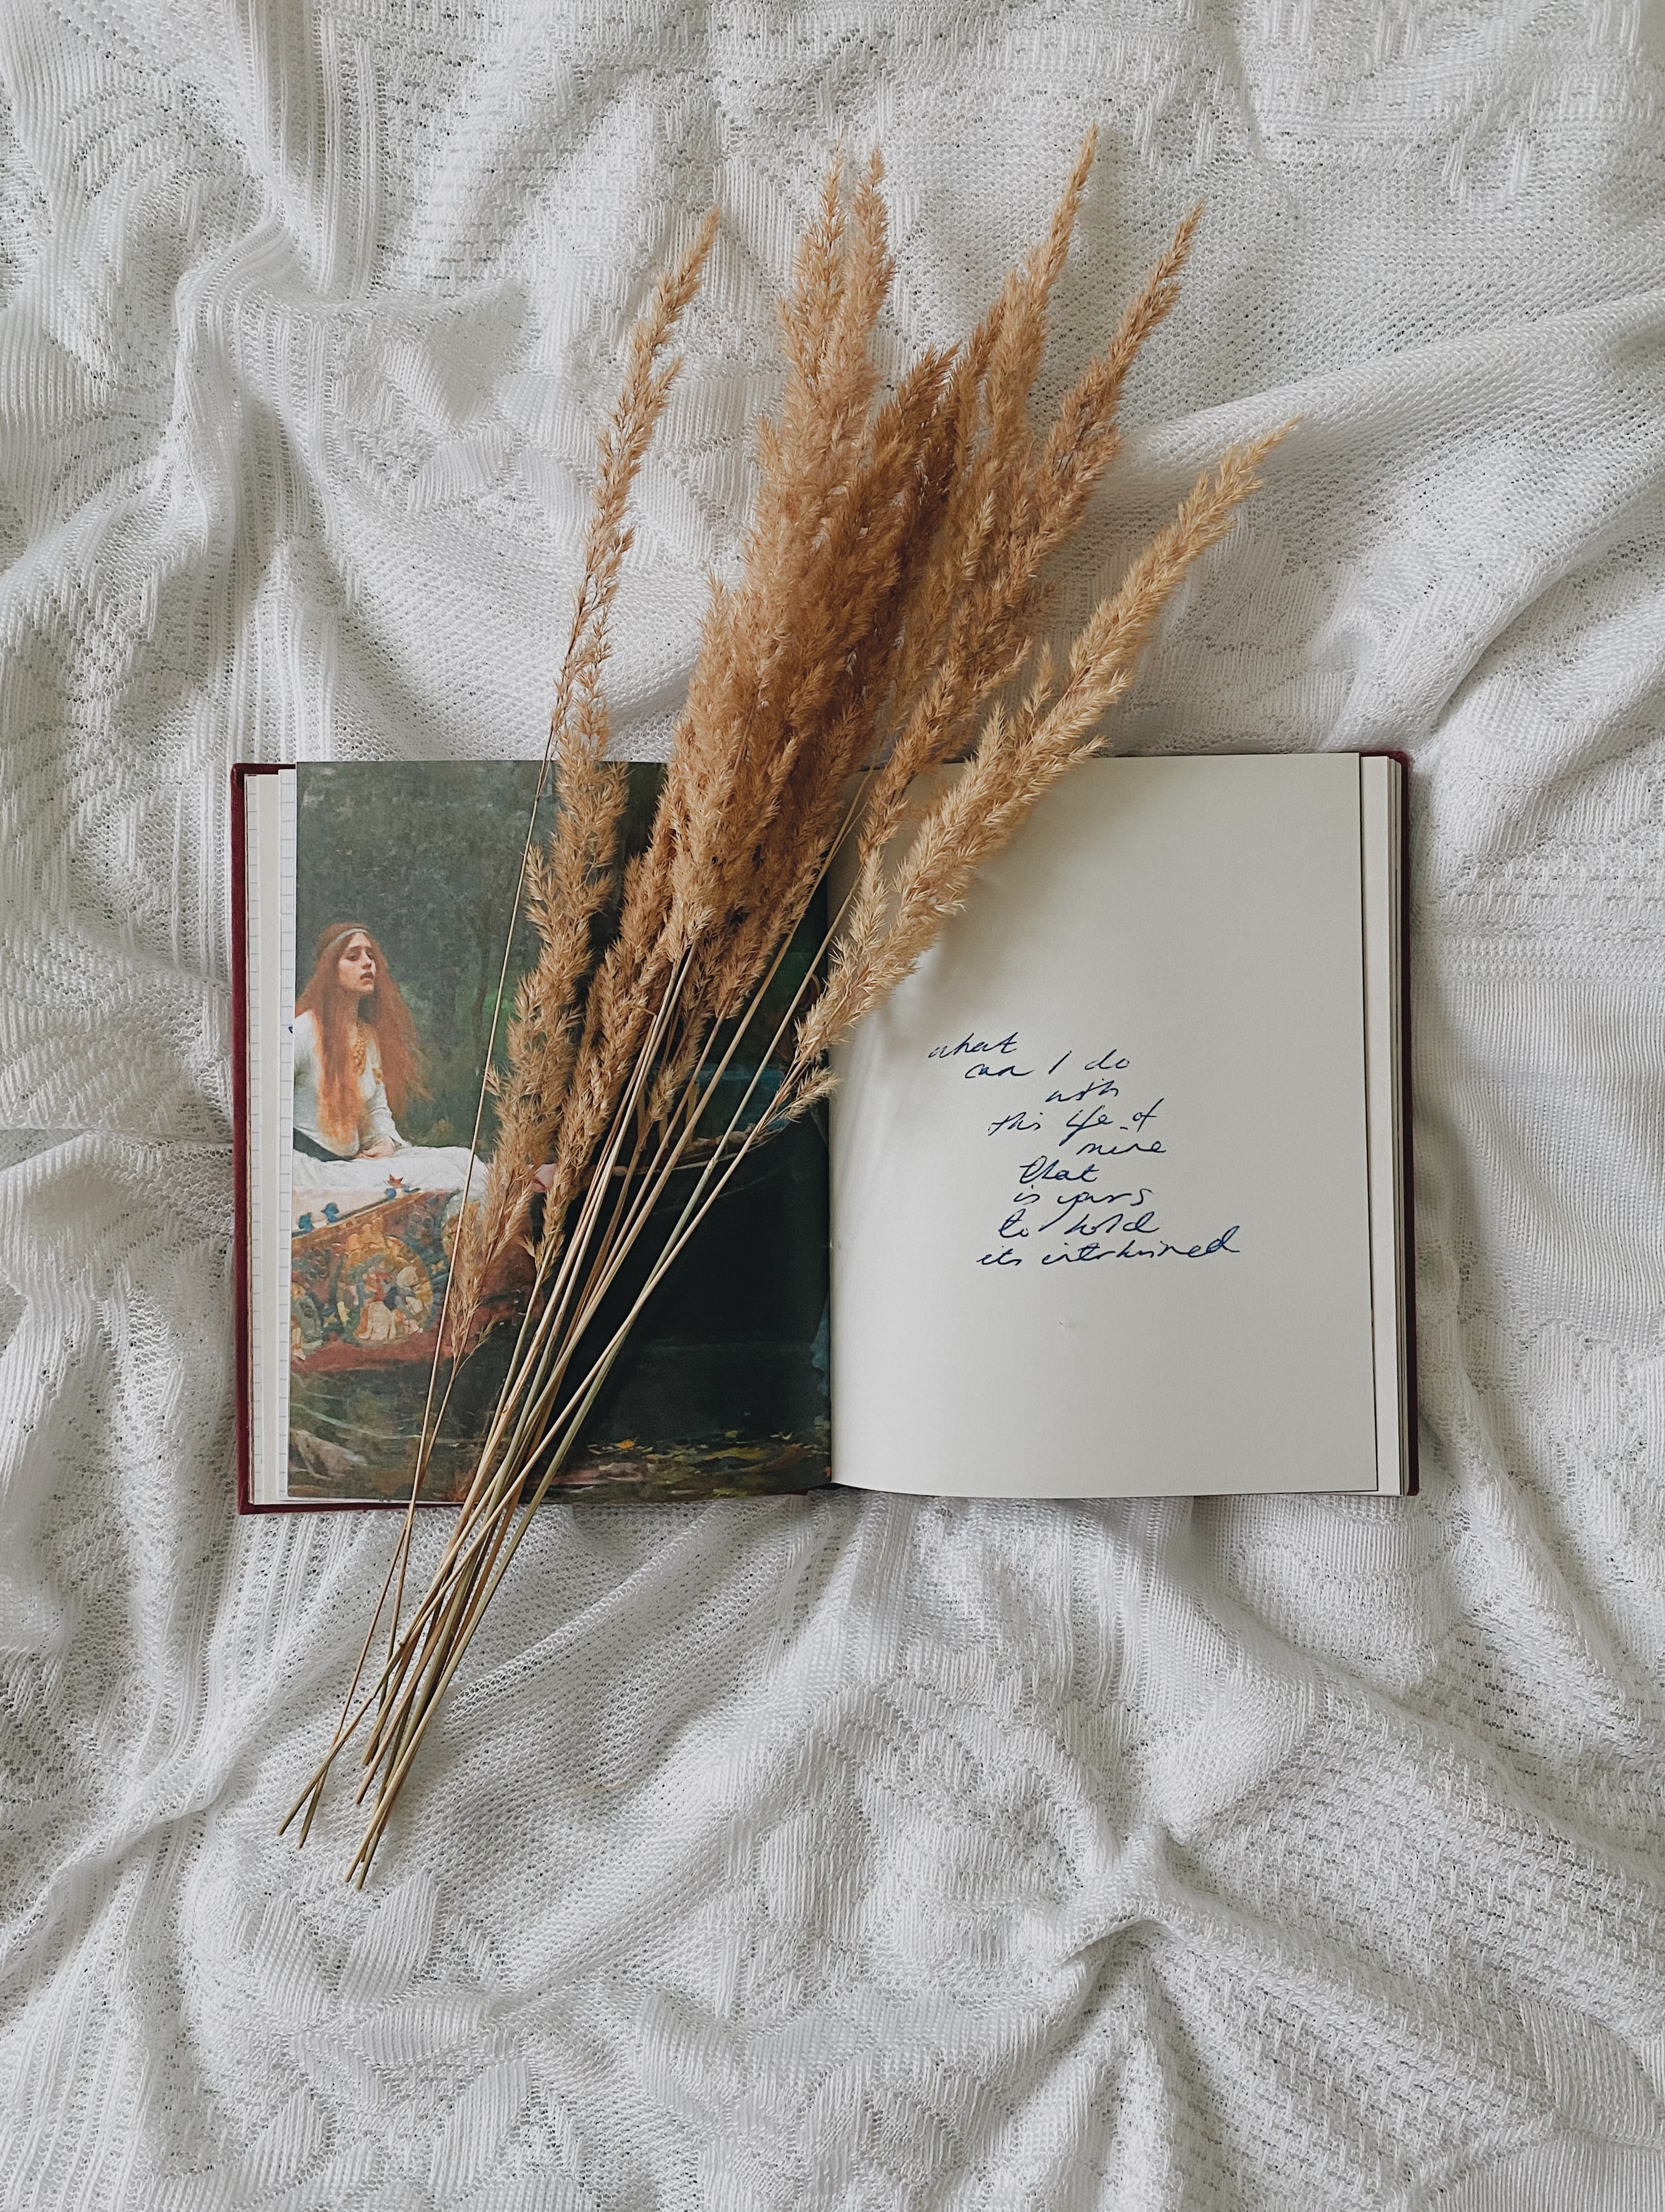 what
can I do
with
this life of
mine
that
is yours
to hold
its intertwined